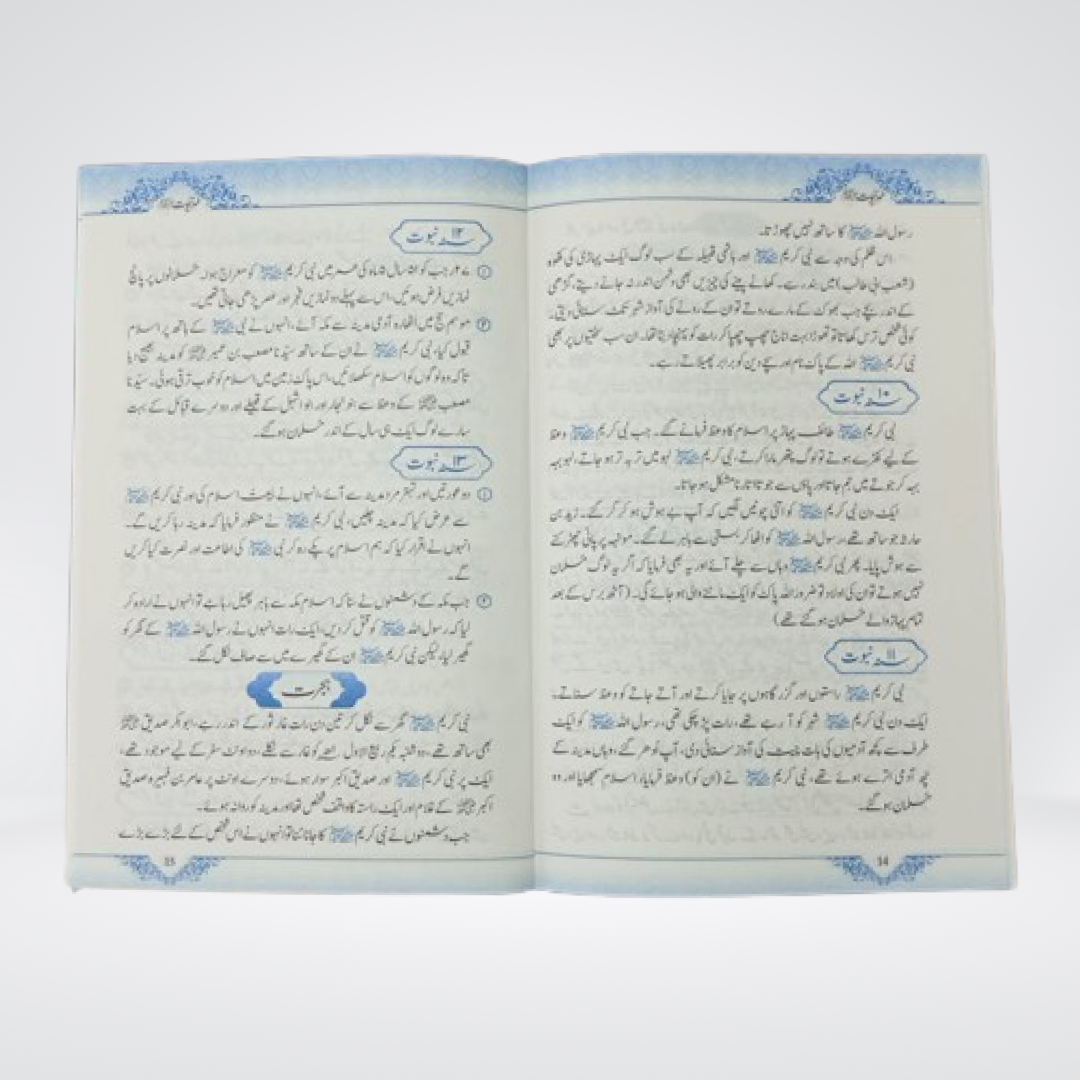 رسول اللہ ﷺ کا ساتھ نہیں چھوڑتا۔
اس ظلم کی وجہ سے نبی کریم ﷺ اور ہاشمی قبیلہ کے سب لوگ ایک پہاڑی کی کھوہ
(شعب ابی طالب) میں بند رہے۔ کھانے پینے کی چیزیں بھی دشمن اندر نہ جانے دیتے، گڑھی
کے اندر بچے جب بھوک کے مارے روتے تو ان کے رونے کی آواز شہر تک سنائی دیتی۔
کوئی شخص ترس کھاتا تو تھوڑا بہت اناج چھپ چھپا کر رات کو پہنچا دیتا تھا۔ ان سب سختیوں پر بھی
نبی کریم ﷺ اللہ کے پاک نام اور سچے دین کو برابر پھیلاتے رہے۔
۱۰ سنہ نبوت
نبی کریم ﷺ طائف پہاڑ پر اسلام کا وعظ فرمانے گئے۔ جب نبی کریم ﷺ وعظ
کے لیے کھڑے ہوتے تو لوگ پتھر مارا کرتے، نبی کریم ﷺ لہو میں تر بہ تر ہو جاتے، لہو بہہ
بہہ کر جوتے میں جم جاتا اور پاؤں سے جوتا اتارنا مشکل ہو جاتا۔
ایک دن نبی کریم ﷺ کو اتنی چوٹیں لگیں کہ آپ بے ہوش ہو کر گر گئے۔ زید بن
حارثہ جو ساتھ تھے، رسول اللہ ﷺ کو اٹھا کر بستی سے باہر لے گئے۔ مونہہ پر پانی چھڑکنے
سے ہوش پایا۔ پھر نبی کریم ﷺ وہاں سے چلے آئے اور یہ بھی فرمایا کہ اگر یہ لوگ مسلمان
نہیں ہوتے تو ان کی اولاد تو ضرور اللہ پاک کو ایک ماننے والی ہو جائے گی۔ (آٹھ برس کے بعد
تمام پہاڑ والے مسلمان ہو گئے تھے)
۱۱ سنہ نبوت
نبی کریم ﷺ راستوں اور گزر گاہوں پر جایا کرتے اور آتے جاتے کو وعظ سناتے۔
ایک دن نبی کریم ﷺ شہر کو آ رہے تھے، رات پڑ چکی تھی، رسول اللہ ﷺ کو ایک
طرف سے کچھ آدمیوں کی بات چیت کی آواز سنائی دی، آپ اُدھر گئے، وہاں مدینہ کے
چھ آدمی اترے ہوئے تھے، نبی کریم ﷺ نے (ان کو) وعظ فرمایا، اسلام سمجھایا اور وہ
مسلمان ہو گئے۔
14
۱۲ سنہ نبوت
① ۲۷ رجب کو نبی کریم ﷺ کو معراج ہوا۔ مسلمانوں پر پانچ
نمازیں فرض ہوئیں، اس سے پہلے دو نمازیں فجر اور عصر پڑھی جاتی تھیں۔
② موسم حج میں اٹھارہ آدمی مدینہ سے مکہ آئے، انہوں نے نبی ﷺ کے ہاتھ پر اسلام
قبول کیا، نبی کریم ﷺ نے ان کے ساتھ سیدنا مصعب بن عمیر ﷺ کو مدینہ بھیج دیا
تاکہ وہ لوگوں کو اسلام سکھلائیں، اس پاک زمین میں اسلام کو خوب ترقی ہوئی۔ سیدنا
مصعب کے وعظ سے بنو نجار اور بنو اشہل کے قبیلے اور دوسرے قبائل کے بہت
سارے لوگ ایک ہی سال کے اندر مسلمان ہو گئے۔
۱۳ سنہ نبوت
① دو عورتیں اور تہتر مرد مدینہ سے آئے، انہوں نے بیعت اسلام کی اور نبی کریم ﷺ
سے عرض کیا کہ مدینہ چلیں، نبی کریم ﷺ نے منظور فرمایا کہ مدینہ رہا کریں گے۔
انہوں نے اقرار کیا کہ ہم اسلام پر پکے رہ کر نبی ﷺ کی اطاعت اور نصرت کیا کریں
گے۔
② جب مکہ کے دشمنوں نے سنا کہ اسلام مکہ سے باہر پھیل رہا ہے تو انہوں نے ارادہ کر
لیا کہ رسول اللہ ﷺ کو قتل کر دیں، ایک رات انہوں نے رسول اللہ ﷺ کے گھر کو
گھیر لیا، لیکن نبی کریم ﷺ ان کے گھیرے میں سے صاف نکل گئے۔
ہجرت
نبی کریم ﷺ گھر سے نکل کر تین دن رات غار ثور کے اندر رہے، ابوبکر صدیق
بھی ساتھ تھے، دو شنبہ یکم ربیع الاول کو غار سے نکلے، دو اونٹ سفر کے لیے موجود تھے،
ایک پر نبی کریم ﷺ اور صدیق اکبر سوار ہوئے، دوسرے اونٹ پر عامر بن فہیرہ صدیق
اکبر کے غلام اور ایک راستہ کا واقف شخص تھا اور مدینہ کو روانہ ہوئے۔
جب دشمنوں نے نبی کریم ﷺ کا جانا سنا تو انہوں نے اس شخص کے لئے بڑے بڑے
15